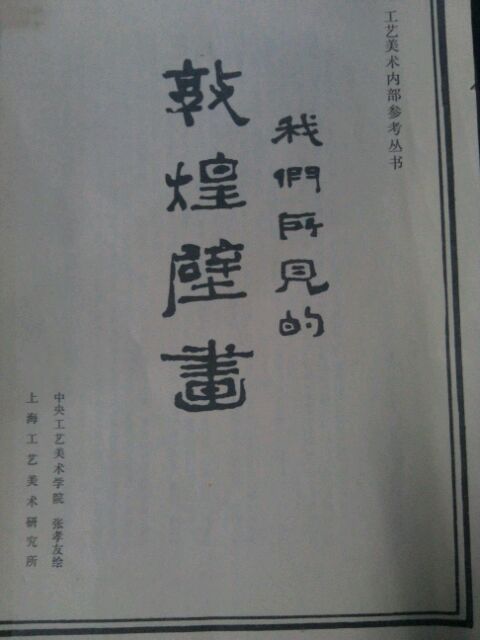 工艺美术内部参考丛书
我們所見的
敦煌壁畫
中央工艺美术学院 张孝友绘
上海工艺美术研究所